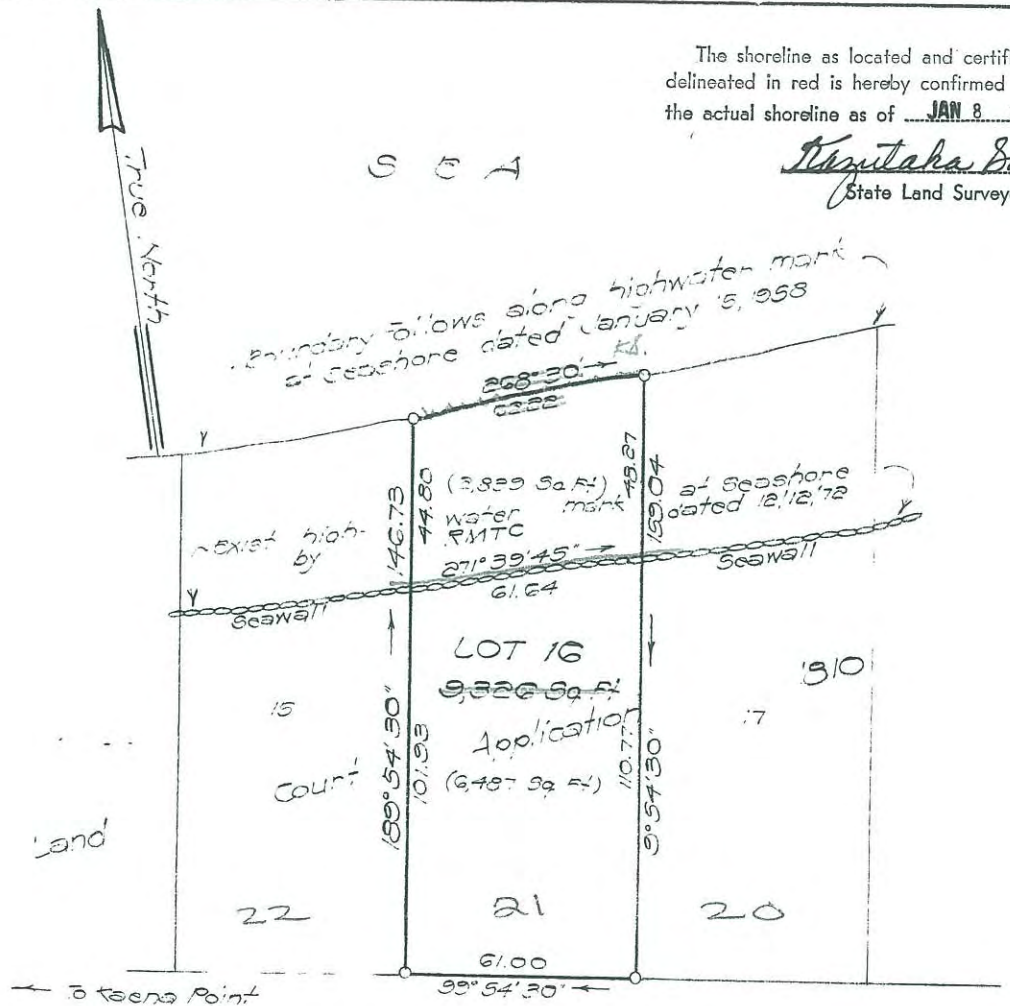 The shoreline as located and certifi
delineated in red is hereby confirmed
the actual shoreline as of JAN 8
Kazutaka
State Land Survey
True North
SEA
Boundary follows along highwater mark
at seashore dated January 15, 1958
268°30'
62.22
146.73
44.80
(2,839 Sq Ft)
48.27
159.04
Exist high-water mark at seashore
by RMTC dated 12/12/72
271°39'45"
61.64
Seawall
Seawall
LOT 16
9,326 Sq Ft
1810
15
17
Land Court Application
(6,487 Sq Ft)
189°54'30"
101.93
110.77
9°54'30"
22
21
20
61.00
99°54'30"
To Kaena Point